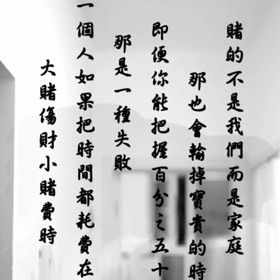 賭的不是我們而是家庭
那也會輸掉寶貴的時
即便你能把握百分之五十
那是一種失敗
一個人如果把時間都耗費在
大賭傷財小賭費時